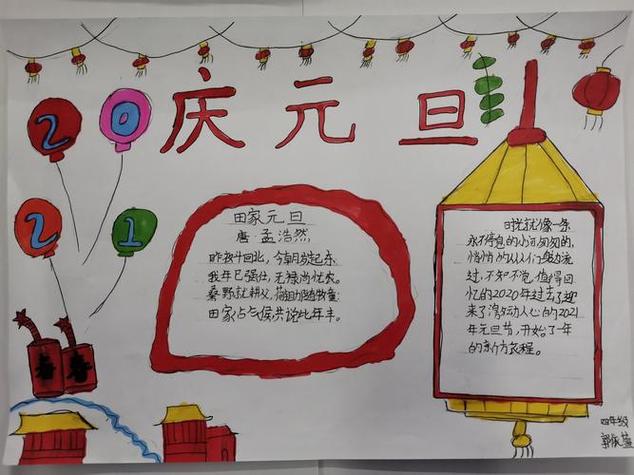 庆元旦
20
21
田家元旦
唐·孟浩然
昨夜斗回北，今朝岁起东。
我年已强仕，无禄尚忧农。
桑野就耕父，荷锄随牧童。
田家占气候，共说此年丰。
时光就像一条
永不停息的小河匆匆的，
悄悄的从人们身边流
过，不知不觉，值得回
忆的2020年过去了，迎
来了激动人心的2021
年元旦节，开始了一年
的新方旅程。
春
春
四年级